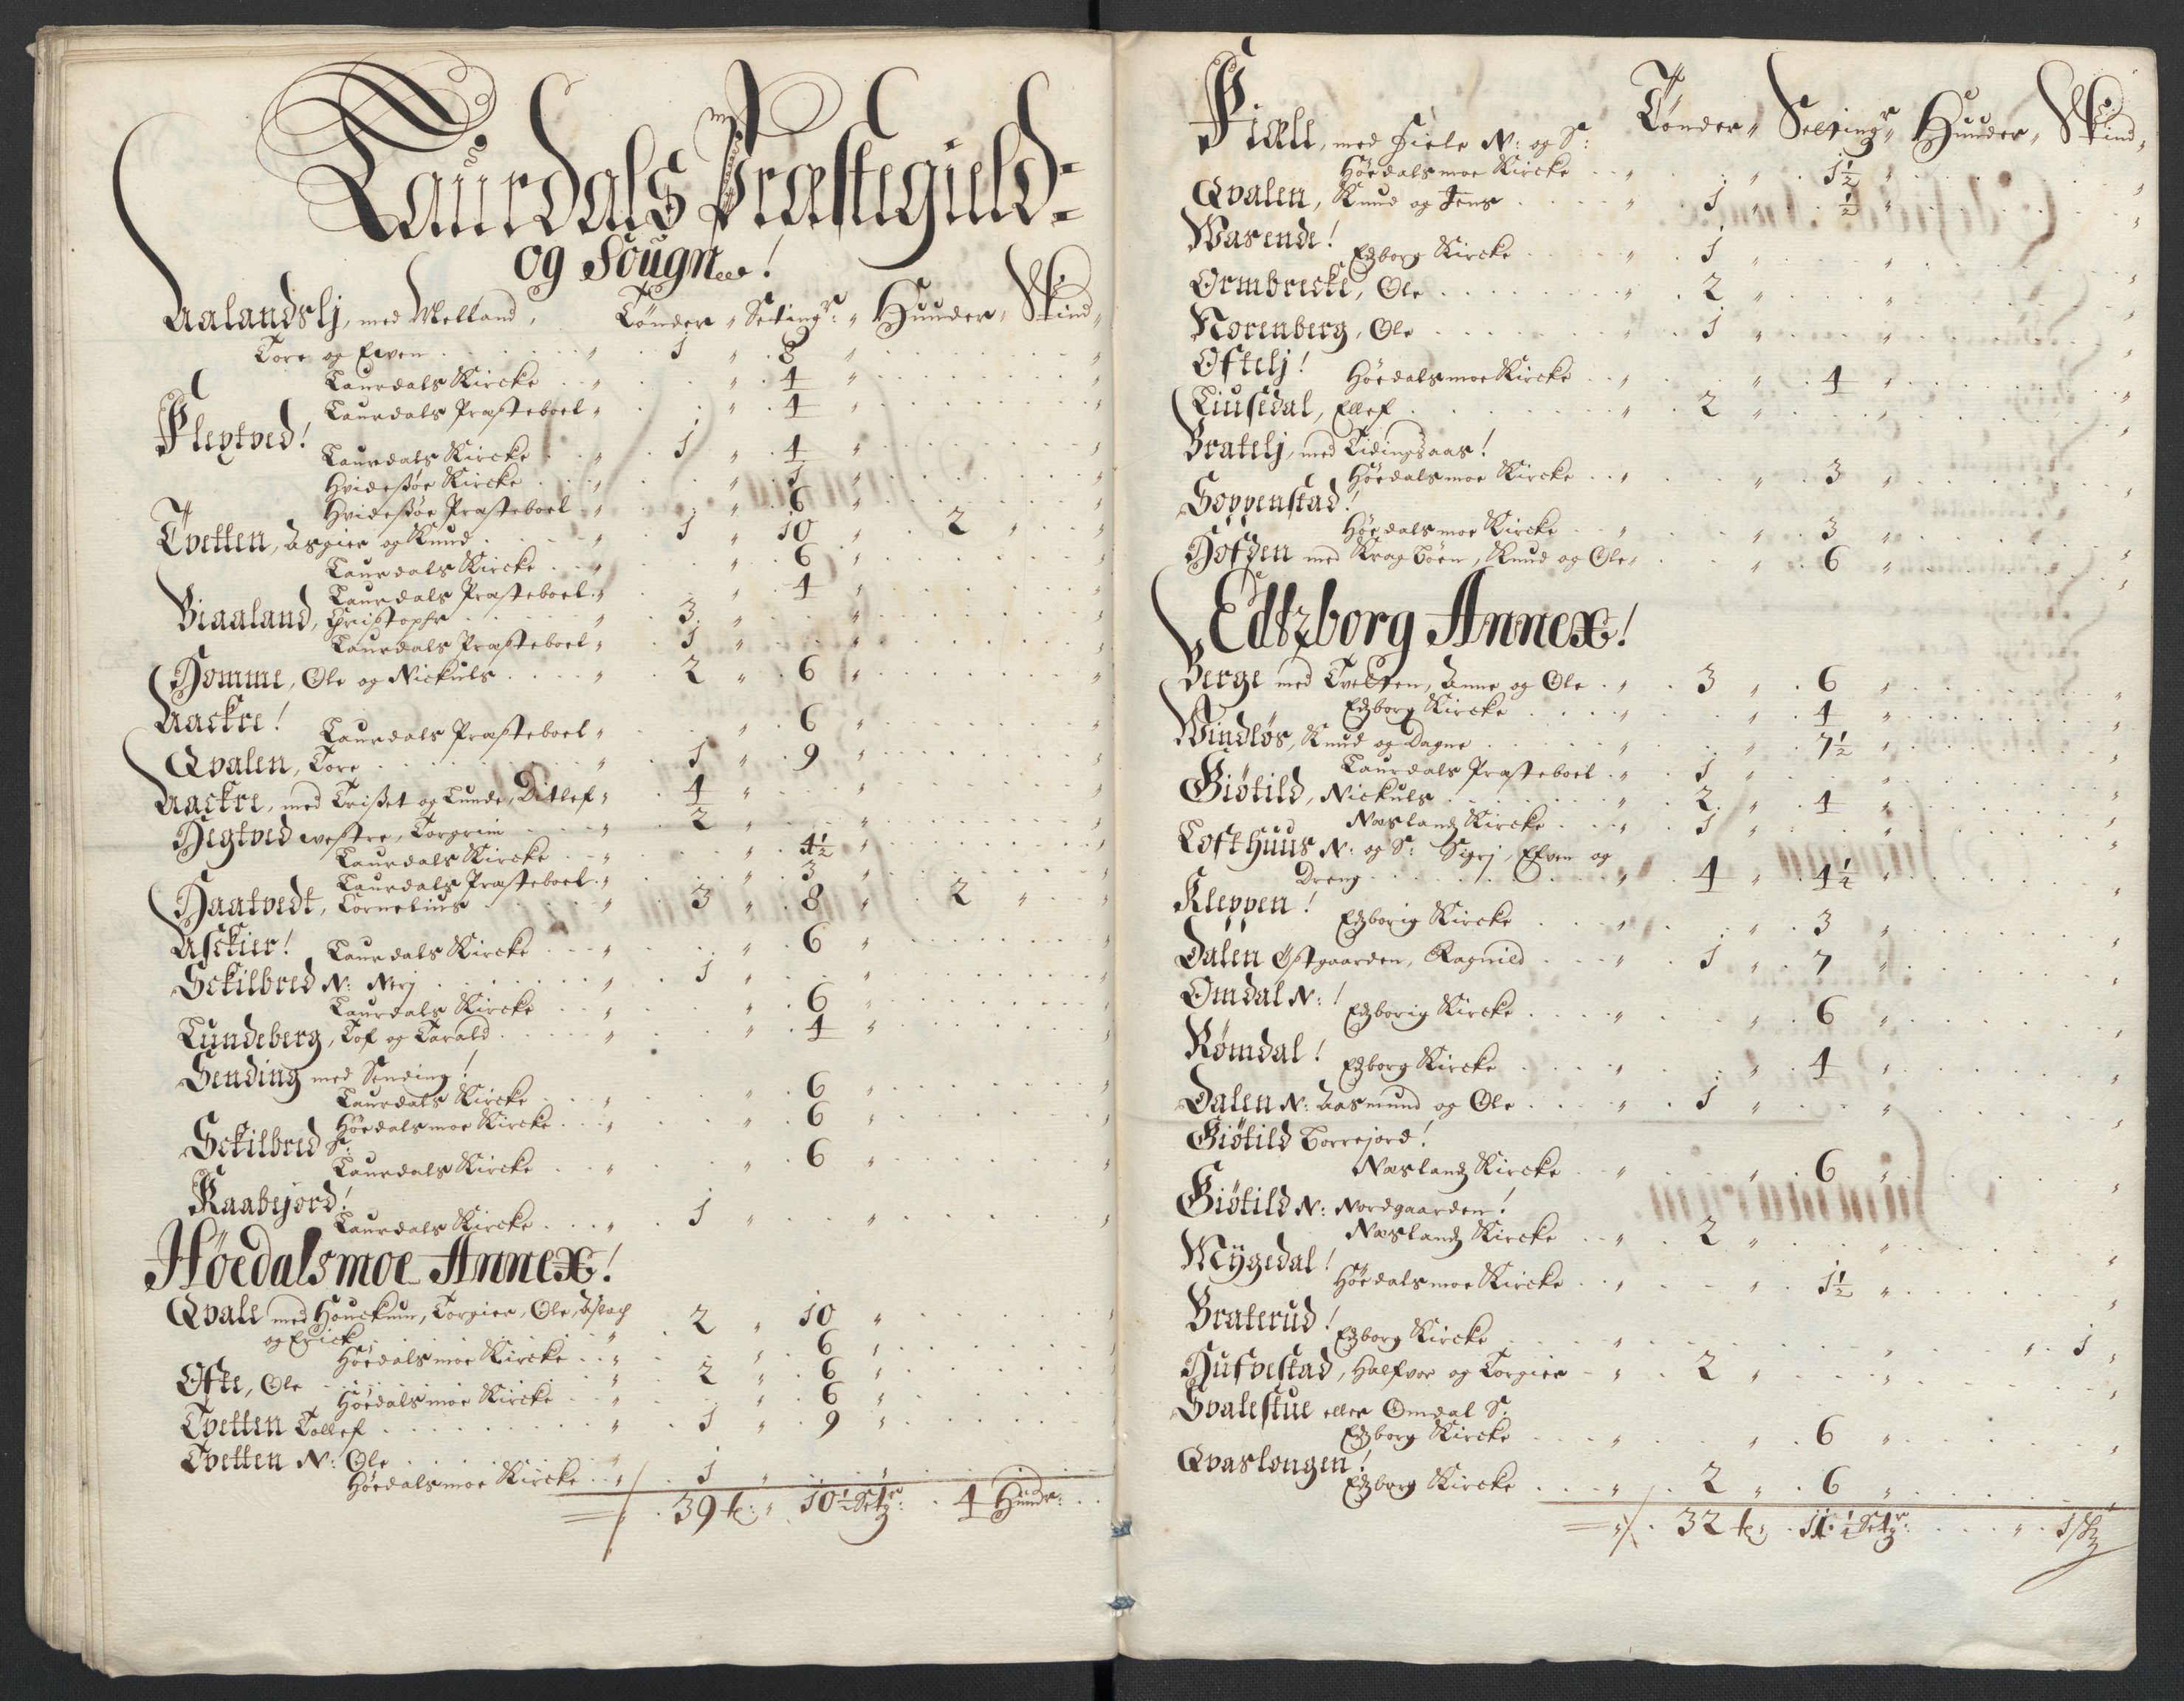 Laurdals Præstegield
og Sougn!
Aalandslj, med Melland, Tønder " Setting: " Huuder, Skind,
Tore og Efven . . . " . 1 " . 8 "
Laurdals Kircke . . " . . " . 4 "
Laurdals Præsteboel " . . " . 4 "
Flegtved!
Laurdals Kircke . . " . 1 " . 4 "
Hvidesøe Kircke . . " . . " . 1 "
Hvidesøe Præsteboel . " . . " . 6 "
Tvetten, Asgier og Knud . . " . 1 " . 10 " . 2 "
Laurdals Kircke . . " . . " . 6 "
Laurdals Præsteboel . " . . " . 4 "
Biaaland, Christopher . . " . 3 "
Laurdals Præsteboel " . 1 "
Homme, Ole og Nickuls . . " . 2 " . 6 "
Aackre!
Laurdals Præsteboel " . . " . 6 "
Qvalen, Tore . . " . 1 " . 9 "
Aackre, med Triset og Lunde, Ditlef " . 4 "
Hegtved westre, Torgrim . . 2 "
Laurdals Kircke . . " . . " . 4½ "
Laurdals Præsteboel . " . . " . 3 "
Haatvedt, Cornelius . . " . 3 " . 8 " . 2 "
Asckier! Laurdals Kircke . . " . . " . 6 "
Sckilbred N: Nerj . . " . 1 "
Laurdals Kircke . . " . . " . 6 "
Lundeberg, Tof og Tarald . . " . . " . 4 "
Sending med Sending!
Laurdals Kircke . . " . . " . 6 "
Høedalsmoe Kircke . . " . . " . 6 "
Sckilbred S:
Laurdals Kircke . . " . . " . 6 "
Raabejord!
Laurdals Kircke . . " . 1 "
Høedalsmoe Annex!
Qvale med Houckum, Torgier, Ole, Aslach
og Erick . . " . 2 " . 10 "
Høedalsmoe Kircke . . " . . " . 6 "
Ofte, Ole . . " . 2 " . 6 "
Høedalsmoe Kircke . . " . . " . 6 "
Tvetten Tollef . . " . 1 " . 9 "
Tvetten N: Ole . . "
Høedalsmoe Kircke . . " . 1 "
39 t: " 10½ Setg: . 4 Huudr:
Fiæll, med Fiele N: og S: Tønder " Setting " Huuder " Skind "
Høedalsmoe Kircke . . " . . " . 1½ "
Qvalen, Knud og Jens . . " . 1 " . ½ "
Wasende!
Edzborg Kircke . . " . 1 "
Ormbrecke, Ole . . " . 2 "
Norenberg, Ole . . " . 1 "
Oftelj!
Høedalsmoe Kircke . . " . . " . 4 "
Liusedal, Ellef . . " . 2 "
Bratelj, med Tidingsaas!
Høedalsmoe Kircke . . " . . " . 3 "
Goppenstad!
Høedalsmoe Kircke . . " . . " . 3 "
Hofden med Kragbøen, Knud og Ole " . . " . 6 "
Edtzborg Annex!
Berge med Tvetten, Anne og Ole . " . 3 " . 6 "
Edzborg Kircke . . " . . " . 4 "
Windløs, Knud og Dagne . . " . . " . 7½ "
Laurdals Præsteboel . " . 1 "
Giøtild, Nickuls . . " . 2 " . 4 "
Næslandz Kircke . . " . 1 "
Lofthuus N: og S: Sigrj, Efven og
Dreng . . " . 4 " . 4¼ "
Kleppen!
Edzborig Kircke . . " . . " . 3 "
Dalen Østgaarden, Ragnild . . " . 1 " . 7 "
Omdal N:!
Edzborig Kircke . . " . . " . 6 "
Rømdal!
Edzborg Kircke . . " . . " . 4 "
Dalen N: Aasmund og Ole . . " . 1 "
Giøtild Borrejord!
Næslandz Kircke . . " . . " . 6 "
Giøtild N: Nordgaarden!
Næslandz Kircke . . " . 2 "
Mygedal!
Høedalsmoe Kircke . . " . . " . 1½ "
Braterud!
Edzborg Kircke . . " . . " . . " . 1 "
Hufvestad, Halfvor og Torgier . " . 2 "
Svalestue eller Omdal S:
Edzborg Kircke . . " . . " . 6 "
Qvaslougen!
Edzborg Kircke . . " . 2 " . 6 "
32 t: " 11¼ Setg: . . " . 1 Sk